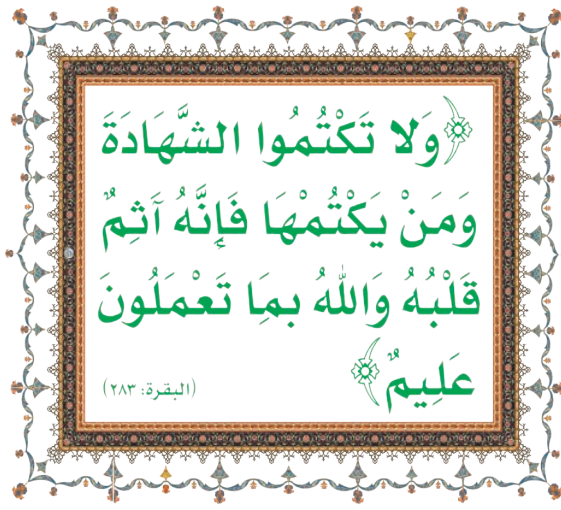 ﴿وَلا تَكْتُمُوا الشَّهَادَةَ
وَمَنْ يَكْتُمْهَا فَإِنَّهُ آثِمٌ
قَلْبُهُ وَاللهُ بِمَا تَعْمَلُونَ
عَلِيمٌ﴾ (البقرة: ٢٨٣)